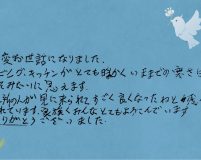 変お世話になりました。
ビング、キッチンがとても暖かくいままでの寒さは
みたいに見えます。
別の人が見に来られすごく良くなったわと
れています。家族くみんなとてもよろこんでいます
りがとうございました。